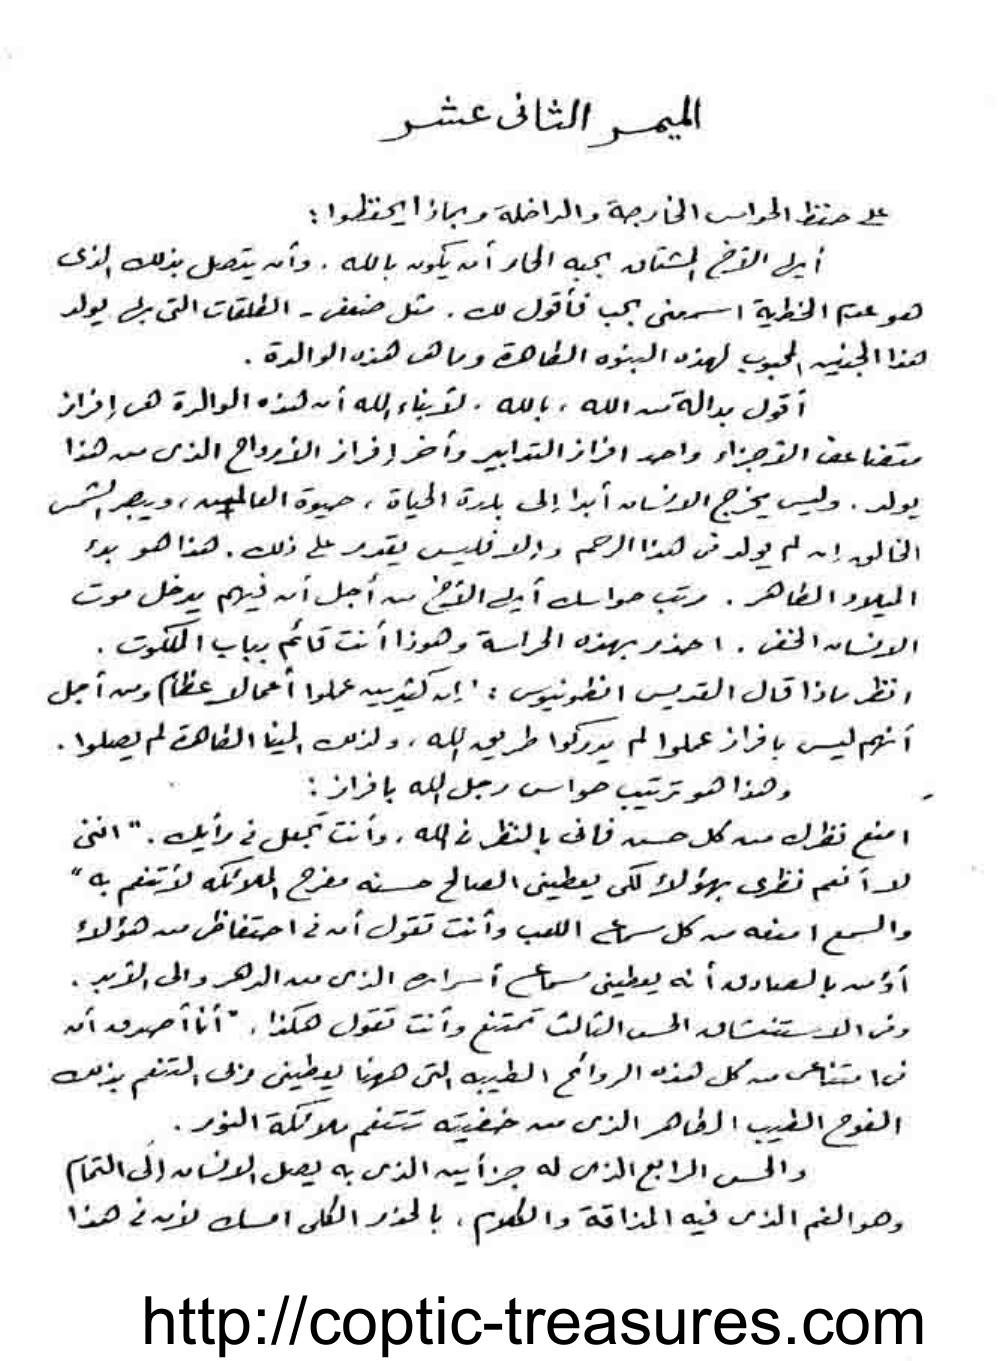 الميمر الثانى عشر
على حفظ الحواس الخارجة والداخلة وبماذا يحفظوا :
أيها الأخ المشتاق بمحبه الحار أن يكون بالله . وأن يتصل بذلك الذى
هو عدم الخطية اسمعنى بحب فأقول لك . مثل ضعفى - الطلقات التى بها يولد
هذا الجنين المحبوب لهذه البنوه الطاهرة وما هى هذه الوالدة .
أقول بدالة من الله ، بالله ، لأبناء الله أن هذه الوالدة هى إفراز
متضاعف الأجزاء واحد افراز التدابير وأخر إفراز الأرواح الذى من هذا
يولد . وليس يخرج الانسان أبدا إلى بلدة الحياة ، حيوة العالمين ، ويبصر الشمس
الخالق إن لم يولد من هذا الرحم والا فليس يقدر على ذلك . هذا هو بدء
الميلاد الطاهر . رتب حواسك أيها الأخ من أجل أن فيهم يدخل موت
الانسان الخفى . احذر بهذه الحراسة وهوذا أنت قائم بباب الملكوت .
انظر ماذا قال القديس انطونيوس : " إن كثيرين عملوا أعمالا عظام ومن أجل
أنهم ليس بافراز عملوا لم يدركوا طريق الله ، ولذلك المينا الطاهرة لم يصلوا .
وهذا هو ترتيب حواس رجل الله بافراز :
امنع نظرك من كل حسن فانى بالنظر فى الله ، وأنت تجعل فى رأيك . " اننى
لا أنعم نظرى بهؤلاء لكى يعطينى الصالح حسنه مفرح الملائكه لأتنعم به "
والسمع امنعه من كل سماع اللعب وأنت تقول أن فى احتفاظى من هؤلاء
أؤمن بالصادق أنه يعطينى سماع أسراره الذى من الدهر والى الأبد .
وفى الاستنشاق الحس الثالث تمتنع وأنت تقول هكذا ، " أنا أصدق أن
فى امتناعى من كل هذه الروائح الطيبه التى ههنا يعطينى ربى التنعم بذلك
الفوح الطيب الطاهر الذى من خفيته تتنعم ملائكة النور .
والحس الرابع الذى له جزأين الذى به يصل الانسان إلى التمام
وهو الفم الذى فيه المذاقة والكلام ، بالحذر الكلى امسك لأن فى هذا
http://coptic-treasures.com